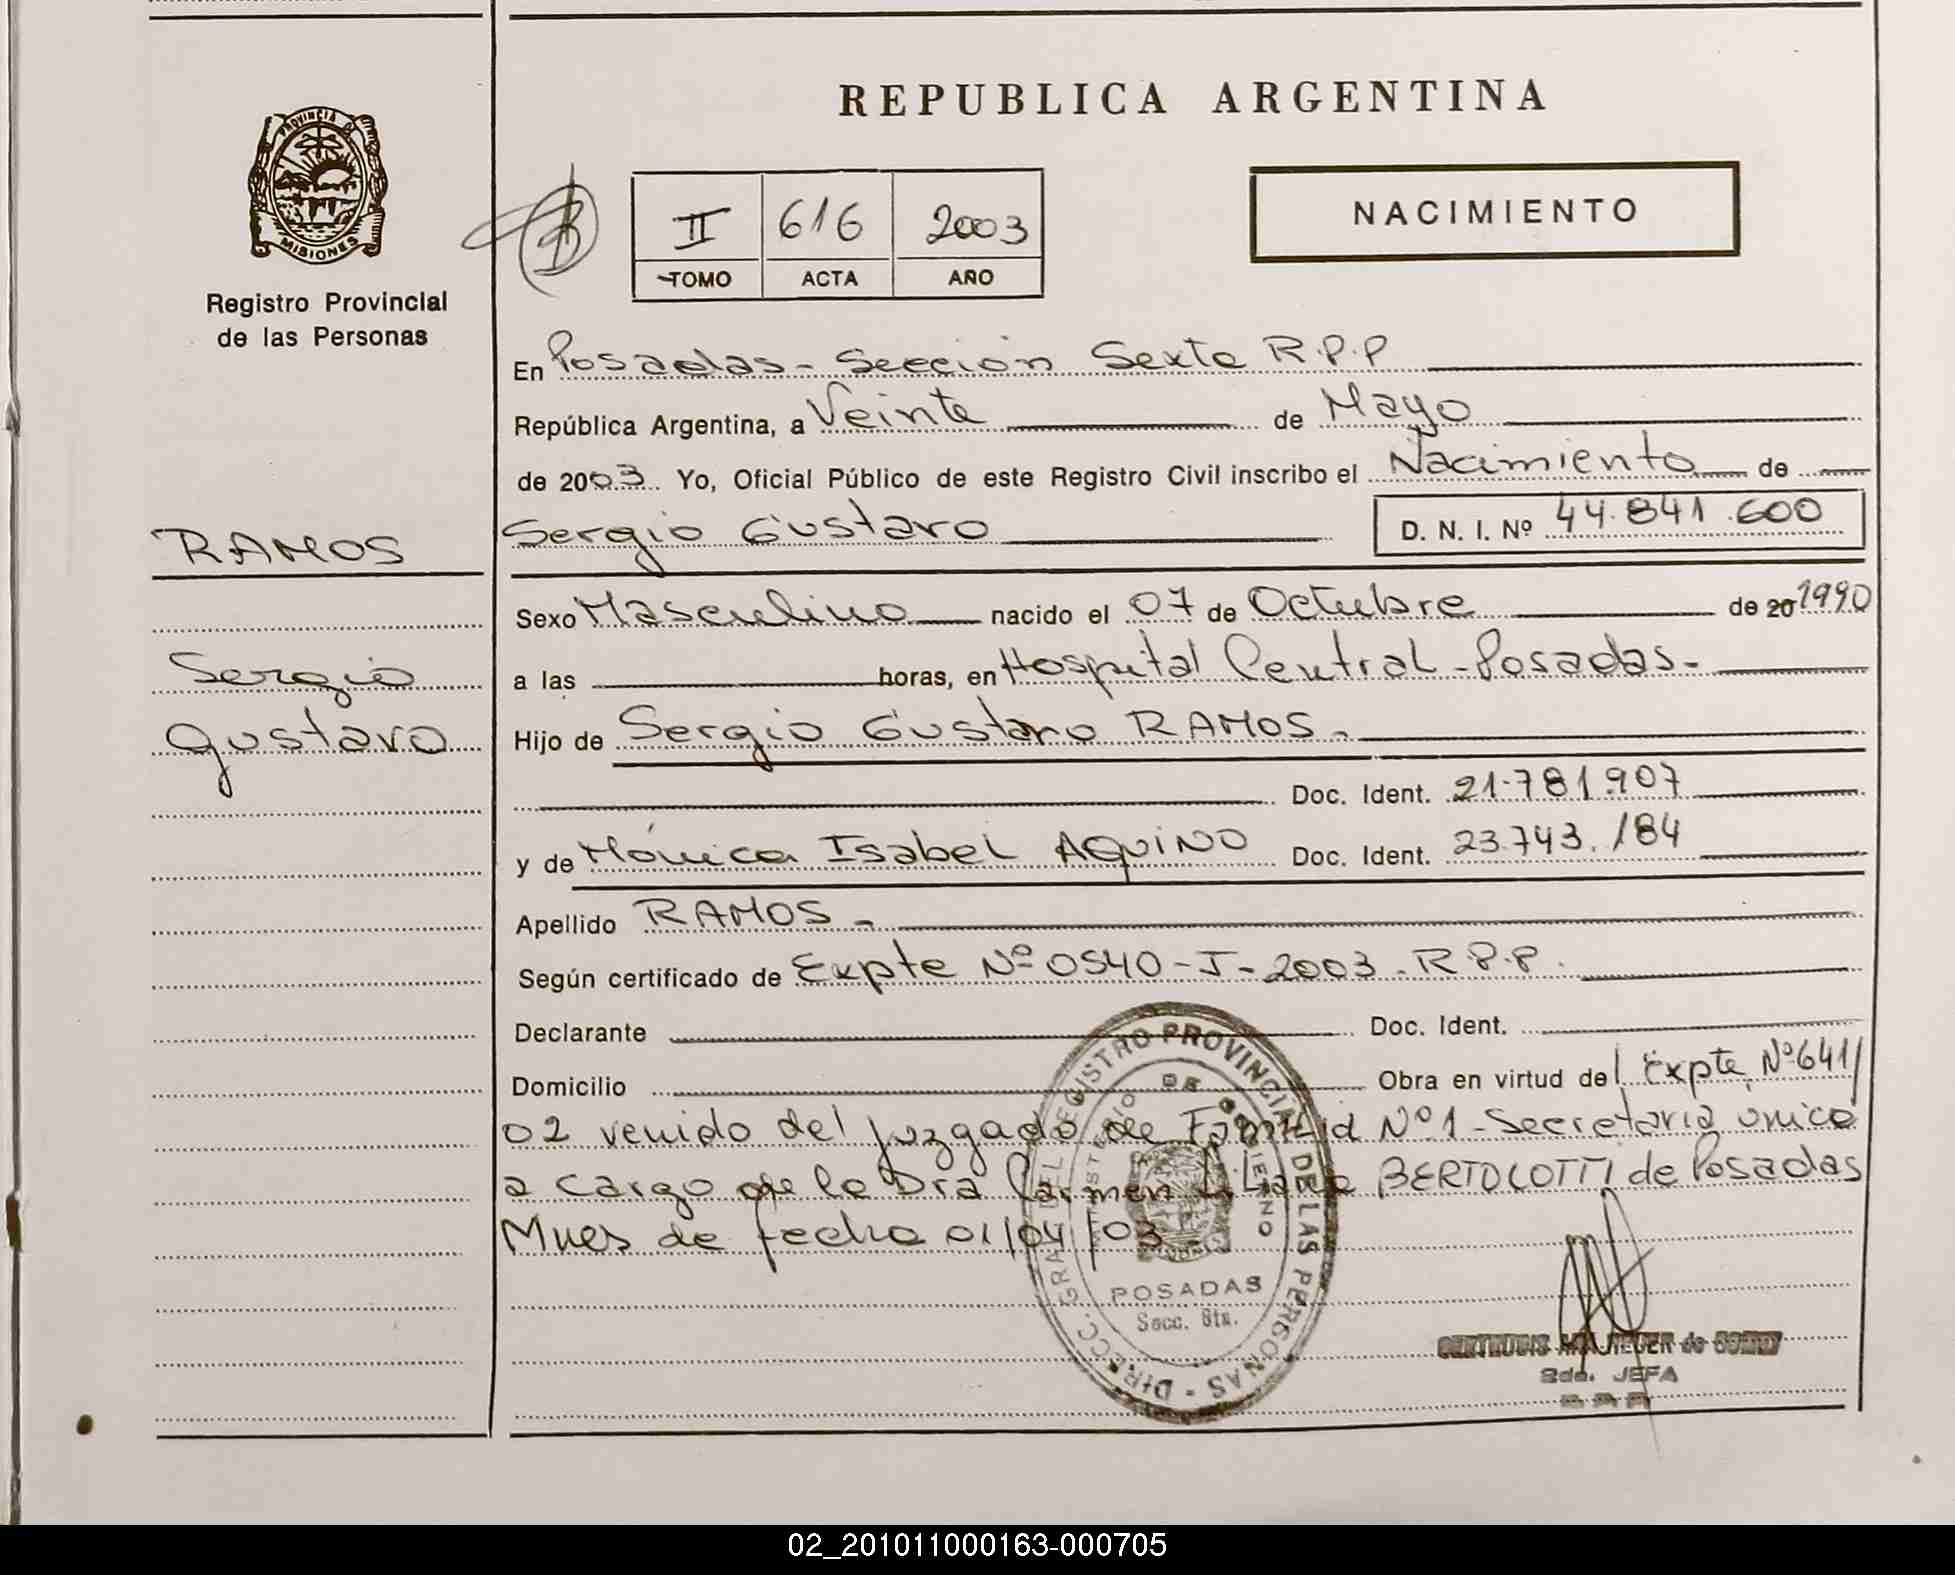 REPUBLICA ARGENTINA
PROVINCIA DE
MISIONES
Registro Provincial
de las Personas
II 616 2003
TOMO ACTA AÑO
NACIMIENTO
En Posadas - Sección Sexta R.P.P
República Argentina, a Veinte de Mayo
de 2003. Yo, Oficial Público de este Registro Civil inscribo el Nacimiento de
Sergio Gustavo D. N. I. Nº 44.841.600
RAMOS
Sergio
Gustavo
Sexo Masculino nacido el 07 de Octubre de 20 1990
a las horas, en Hospital Central - Posadas -
Hijo de Sergio Gustavo RAMOS.
Doc. Ident. 21.781.907
y de Mónica Isabel AQUINO Doc. Ident. 23.743.184
Apellido RAMOS -
Según certificado de Expte Nº 0540 - J - 2003 . R.P.P.
Declarante Doc. Ident.
Domicilio Obra en virtud del Expte Nº 641/
02 venido del juzgado de Familia Nº 1 - Secretaria unica
a cargo de la Dra Carmen Liliana BERTOLOTTI de Posadas
Mnes de fecha 01/04/03.
DIRECC. GRAL DEL REGISTRO PROVINCIAL DE LAS PERSONAS
MINISTERIO DE GOBIERNO
POSADAS
Secc. 6ta.
2da. JEFA
02_201011000163-000705